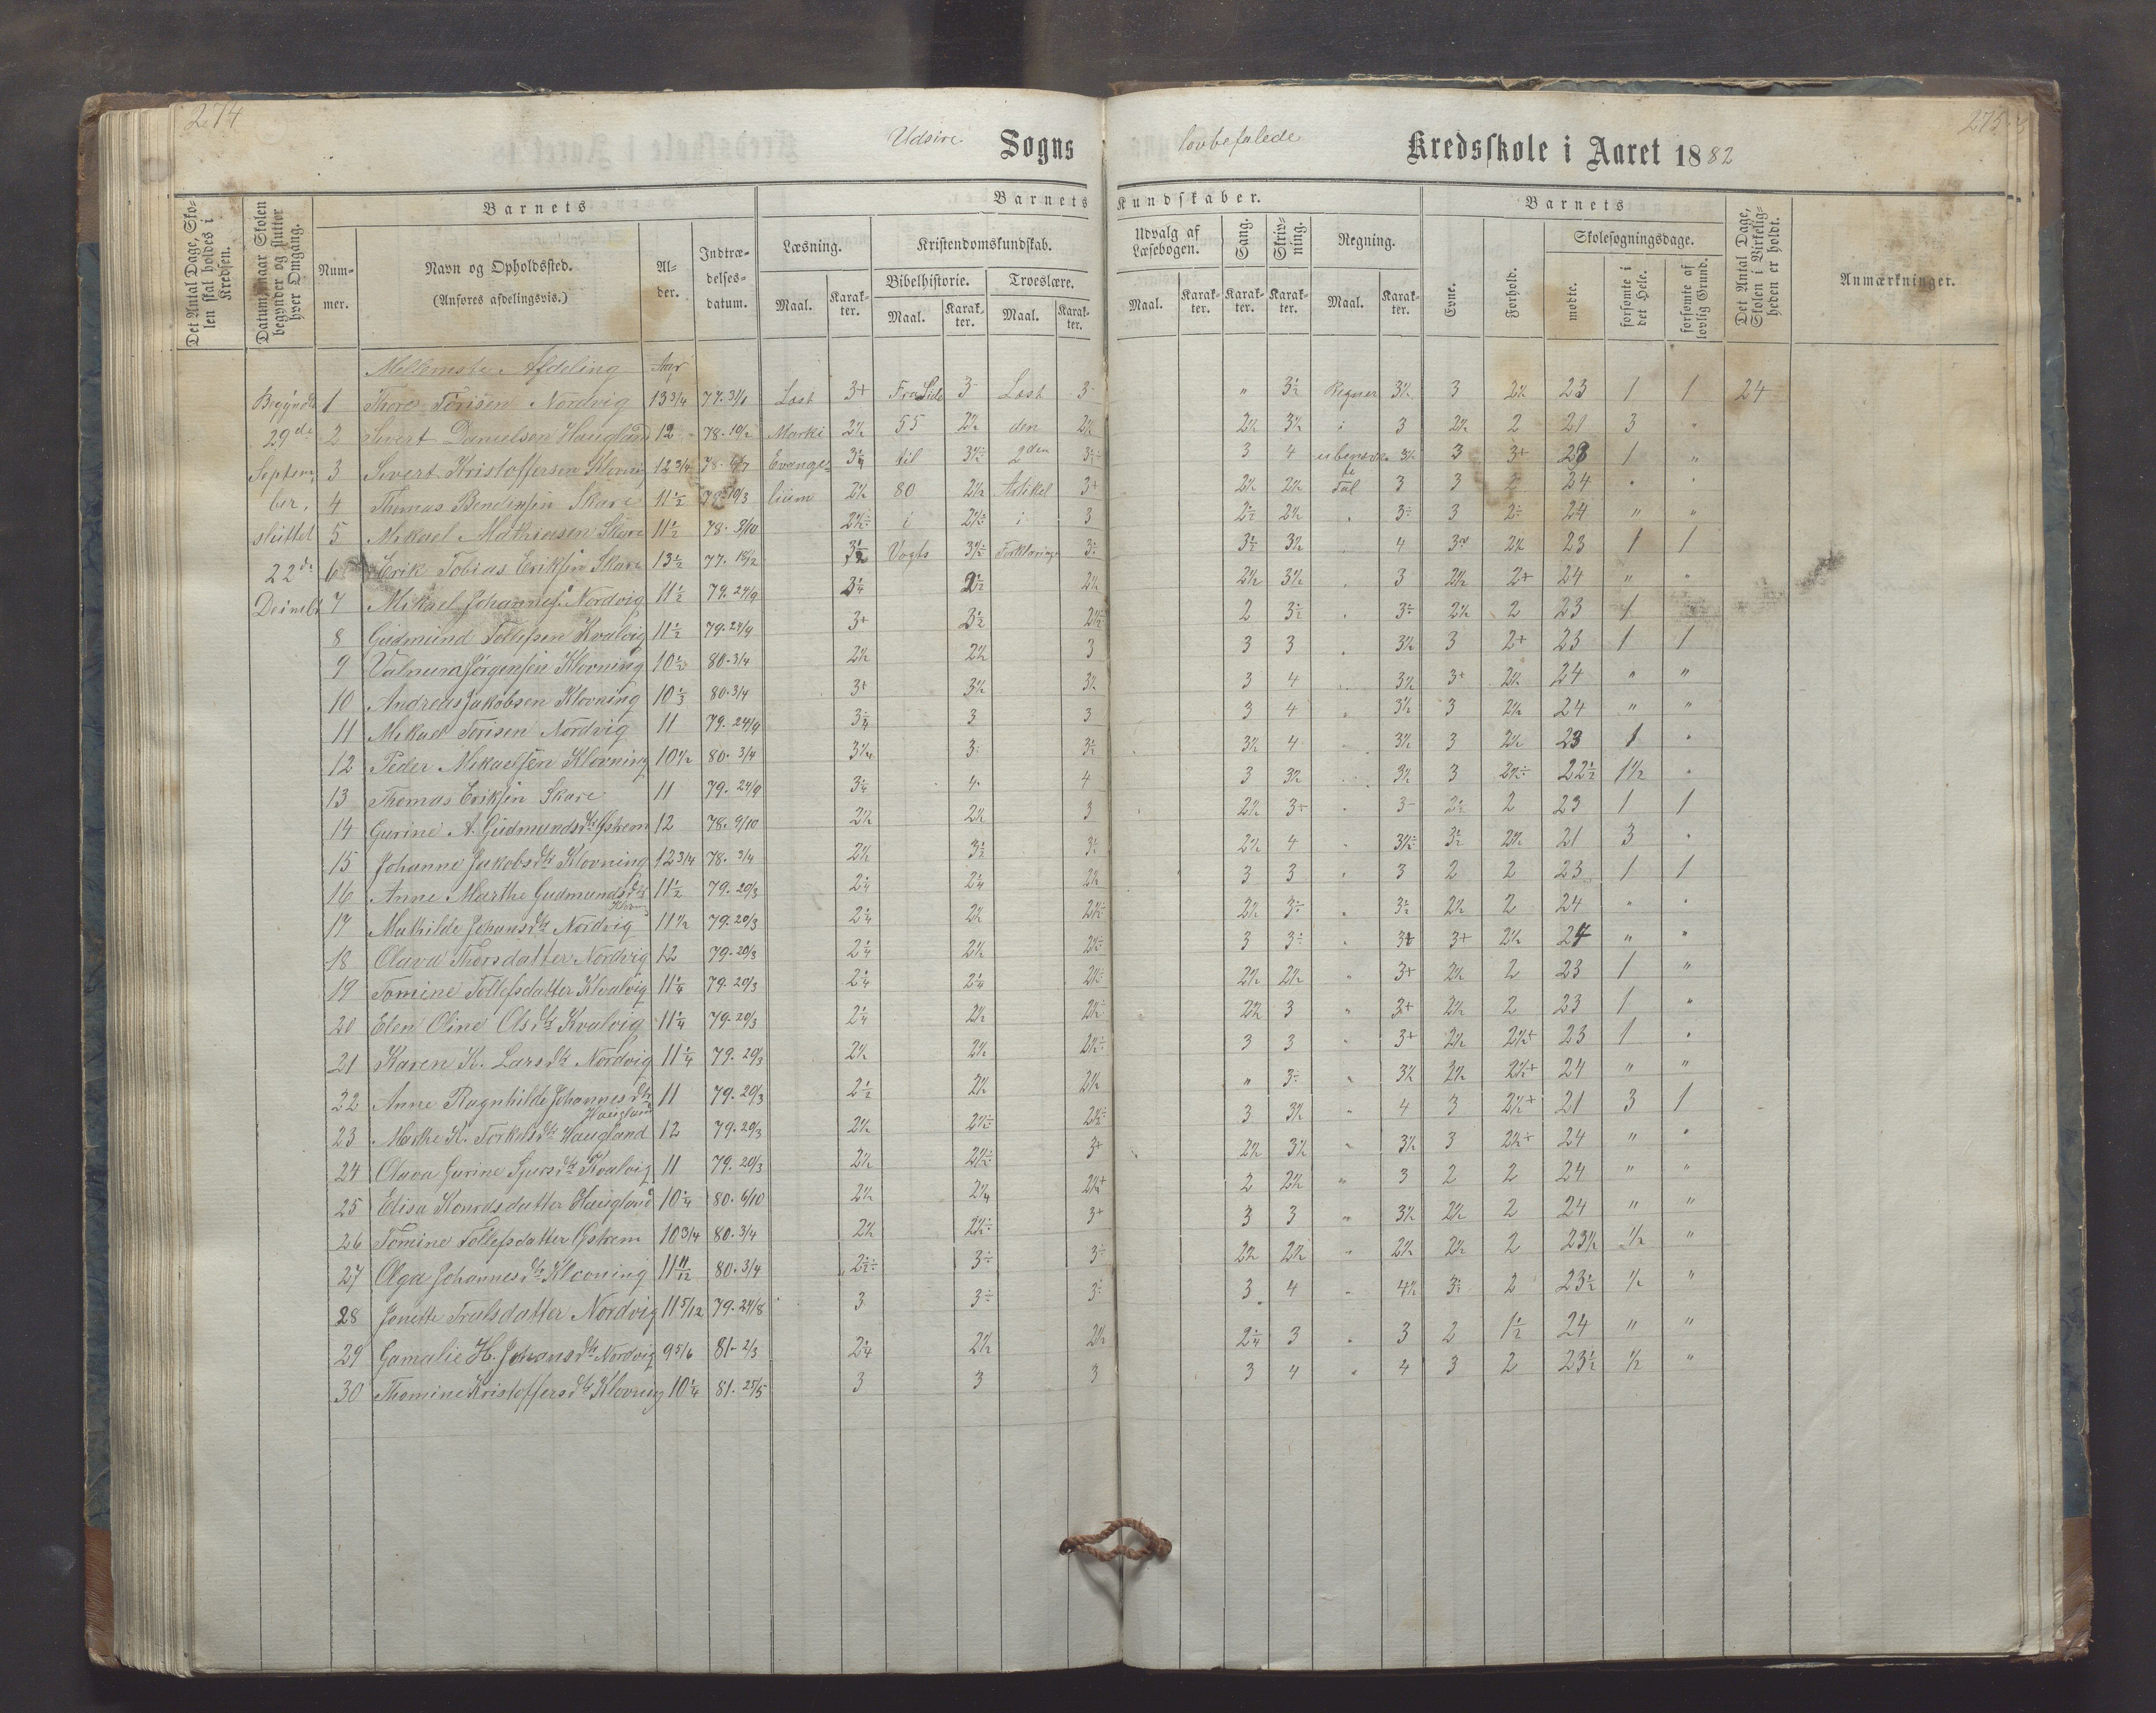 274
275
Udsire Sogns lovbefalede Kredsskole i Aaret 1882
Det Antal Dage, Skolen skal holdes i Kredsen.
Datum, naar Skolen begynder og slutter hver Omgang.
Barnets
Nummer.
Navn og Opholdssted.
(Anføres afdelingsvis.)
Alder.
Indtrædelsesdatum.
Barnets Kundskaber.
Læsning.
Maal. Karakter.
Kristendomskundskab.
Bibelhistorie. Troeslære.
Maal. Karakter. Maal. Karakter.
Udvalg af Læsebogen.
Maal. Karakter.
Sang. Karakter.
Skrivning. Karakter.
Regning.
Maal. Karakter.
Barnets
Evne. Forhold.
Skolesøgningsdage.
mødte. forsømte i det Hele. forsømte af lovlig Grund.
Det Antal Dage, Skolen i Virkeligheden er holdt.
Anmærkninger.
Mellemste Afdeling Aar
Begyndte 1 Thore Torisen Nordvig 13 3/4 77. 31/1 Læst 3+ Fra Side 3- Læst 3- " 3½ Regner 3½ 3 2½ 23 1 1 24
29de 2 Sivert Danielsen Haugland 12 78. 10/2 Marki 2½ 55 2½ den 2½ 2½ 3½ i 3 2½ 2 21 3 "
Septem 3 Sivert Kristoffersen Klovning 12 3/4 Evange 3¼ til 3½ 2den 3 4 3½ 3 3+ 23 1 "
ber, 4 Thomas Skare 11½ 78. 10/3 lium 2½ 80 2½ Artikel 3+ 2½ 2½ Tal 3 3 2 24 " "
sluttet 5 Mikael Mathiasen Skare 11½ 78. 3/10 2½ i 2½ i 3 2½ 2½ " 3 3 2 24 " "
22de 6 Erik Tobias Eriksen Skare 13½ 77. 3½ Vogts 3½ Forklaring 3 3½ 3½ 4 2½ 23 1 1
7 Mikael Johannes. Nordvig 11½ 79. 24/9 3¼ 2½ 2½ 2½ 3½ " 3 2½ 2+ 24 " "
8 Gudmund Tollefsen Kvalvig 11½ 79. 24/9 3+ 3½ 2½ 2 3½ " 3 2½ 2 23 1
9 Valnum Jørgensen Klovning 10½ 80. 3/4 2½ 2½ 3 3 3 " 3½ 3 2+ 23 1 1
10 Andreas Jakobsen Klovning 10⅓ 80. 3/4 3+ 3½ 3½ 3 4 " 3½ 3+ 2½ 24 " "
11 Mikael Torisen Nordvig 11 79. 24/9 3¼ 3 3 3 4 " 3½ 3 2½ 24 " "
12 Peder Mikaelsen Klovning 10½ 80. 3/4 3¼ 3 3½ 3½ 4 " 3½ 3 2½ 23 1 "
13 Thomas Eriksen Skare 11 79. 24/9 3¼ 4 4 3 3½ 3½ 3 2½ 22½ 1½ "
14 Gurine A. Gudmundsdtr 12 78. 9/10 2½ 2½ 3 2½ 3+ " 3 2½ 2 23 1 1
15 Johanne Jakobsdtr Klovning 12 3/4 78. 3/4 2½ 3½ 3½ 2½ 4 " 3½ 3½ 2½ 21 3 "
16 Anne Marthe Gudmundsdtr Klov 11½ 79. 20/3 2¼ 2¼ 2½ 3 3 " 3 2 2 23 1 1
17 Mathilde Johansdtr Nordvig 11½ 79. 20/3 2¼ 2½ 2½ 2½ 3 " 3½ 2½ 2 24 " "
18 Olava Thorsdatter Nordvig 12 79. 20/3 2¼ 2½ 2½ 3 3 " 3+ 2½ 24 " "
19 Tomine Tollefsdatter Kvalvig 11¼ 79. 20/3 2¼ 2¼ 2½ 2½ 2½ " 3+ 2½ 2 23 1 "
20 Elen Oline Olsdtr Kvalvig 11¼ 79. 20/3 2¼ 2½ 2½ 2½ 3 " 3+ 2½ 2 23 1 "
21 Karen K. Larsdtr Nordvig 11¼ 79. 20/3 2½ 2½ 2½ 3 3 " 3+ 2½ 2½+ 23 1 "
22 Anne Ragnhilde Johannesdtr Haugland 11 79. 20/3 2½ 2½ 2½ " 3 " 3½ 2½ 2½+ 24 " "
23 Marthe K. Torkelsdtr Haugland 12 79. 20/3 2½ 2½ 2½ 3 3½ " 4 3 2½+ 21 3 1
24 Olava Gurine Kvalvig 11 79. 20/3 2½ 2½ 3+ 2½ 3½ " 3½ 3 2½+ 24 " "
25 Elisa Konradsdatter Haugland 10¼ 80. 6/10 2½ 2¼ 2½+ 2 2½ " 3 2 2 24 " "
26 Tomine Tollefsdatter 10 3/4 80. 3/4 2½ 2½ 3+ 3 3 " 3½ 2½ 2 24 " "
27 Olga Johannesdtr Klovning 11 11/12 80. 3/4 2½ 3 3 2½ 2½ " 2½ 2½ 2 23½ ½ "
28 Jonette Trulsdatter Nordvig 11 5/12 79. 24/8 3 3 3 3 4 " 4½ 3 2 23½ ½ "
29 Gamalie H. Johansdtr Nordvig 9 5/6 81. 2/3 2¼ 2½ 2½ 2¼ 3 " 3 2 1½ 24 " "
30 Thomine Kristoffersdtr Klovning 10¼ 81. 25/5 3 3 3 3 4 " 4 3 2 23½ ½ "